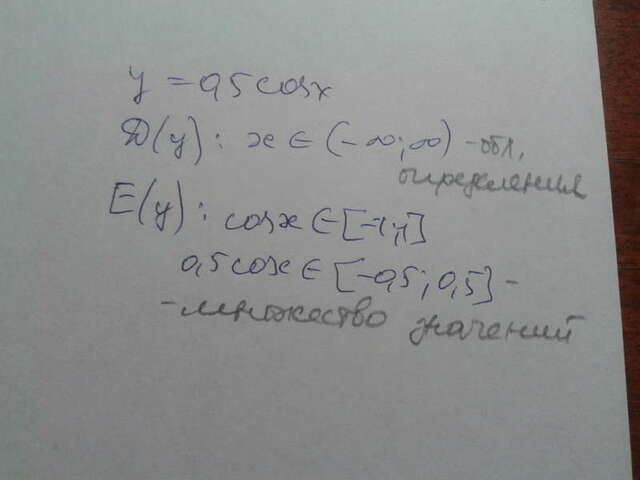 y = 0,5 cosx
D(y) : x ∈ (-∞; ∞) - обл,
определения
E(y) : cosx ∈ [-1; 1]
0,5 cosx ∈ [-0,5; 0,5] -
- множество значений